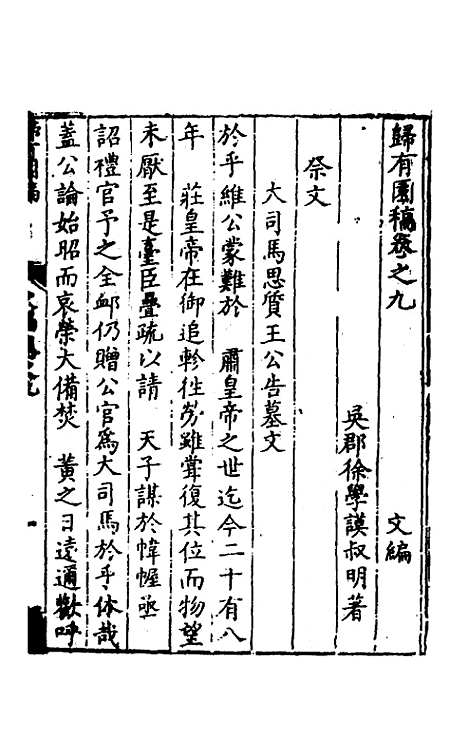 歸有園稿卷之九　文編
吳郡徐學謨叔明著
祭文
大司馬思質王公告墓文
於乎維公蒙難於　肅皇帝之世迄今二十有八
年　莊皇帝在御追軫徃勞雖嘗復其位而物望
未厭至是臺臣疊疏以請　天子謀於幃幄亟
詔禮官予之全卹仍贈公官爲大司馬於乎休哉
蓋公論始昭而哀榮大備焚　黃之日遠邇歡呼
歸有園稿